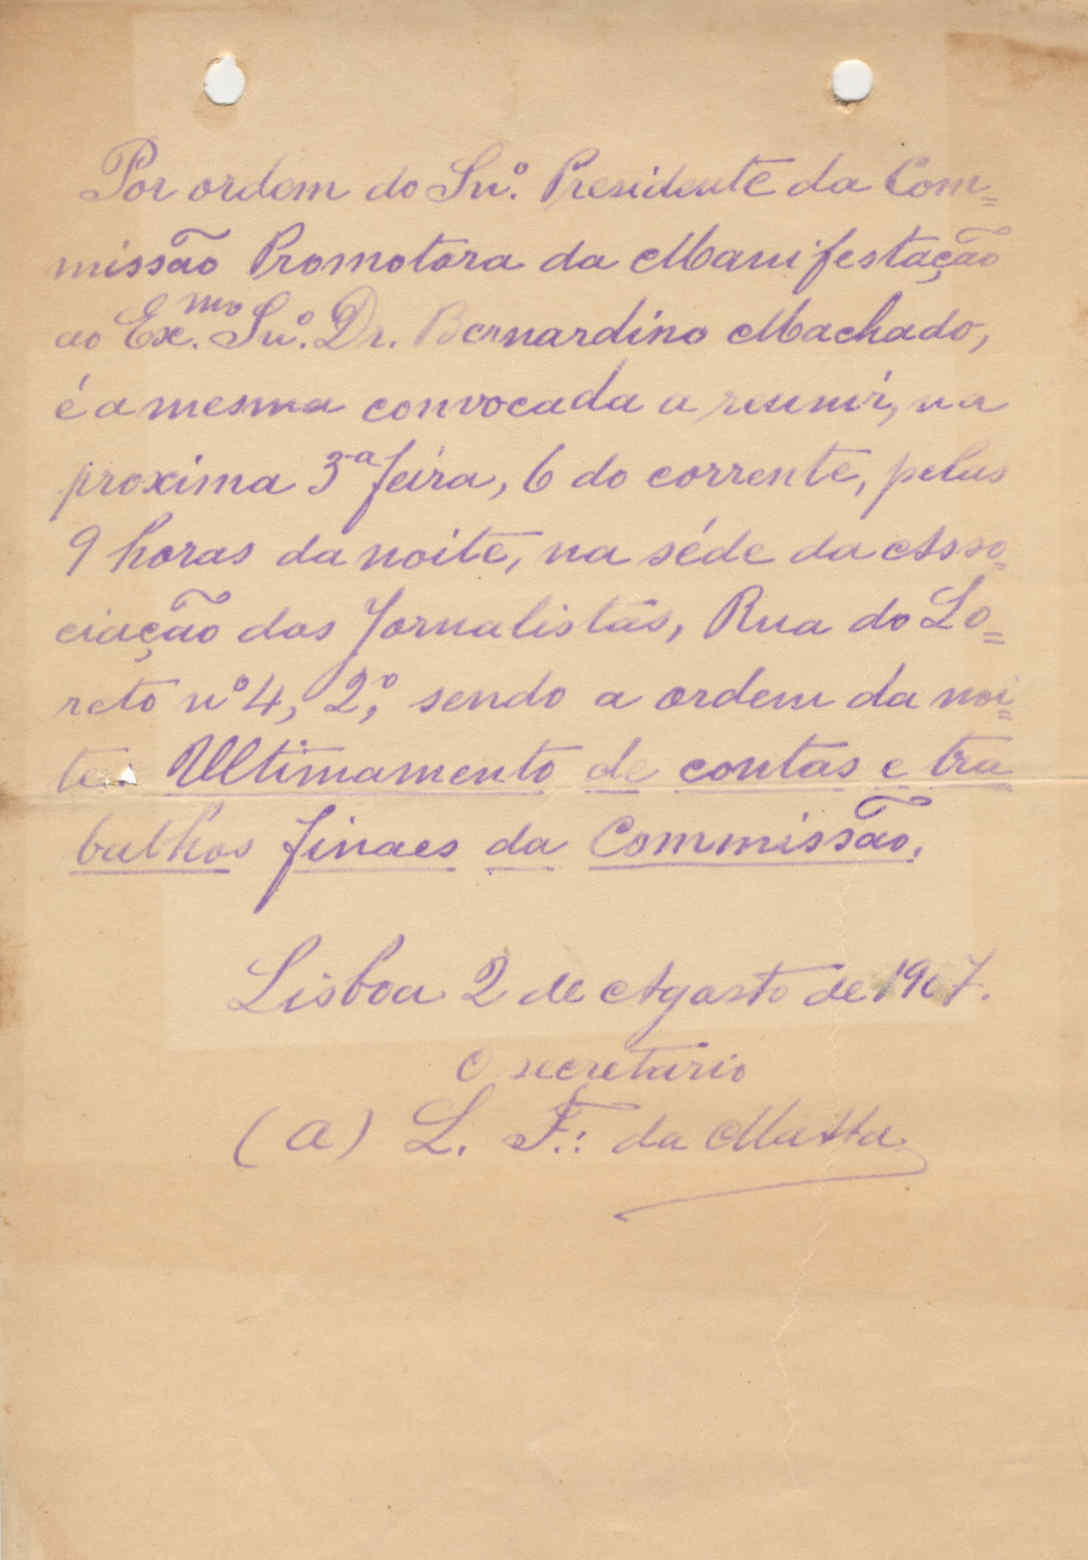 Por ordem do Snr.º Presidente da Com=
missão Promotora da Manifestação
ao Ex.mo Snr.º Dr. Bernardino Machado,
é a mesma convocada a reunir, na
proxima 3ª feira, 6 do corrente, pelas
9 horas da noite, na séde da Asso=
ciação dos Jornalistas, Rua do Lo=
reto nº 4, 2º, sendo a ordem da noi=
te: Ultimamento de contas e tra
balhos finaes da Commissão.
Lisboa 2 de Agosto de 1907.
O secretario
(a) L. F.: da Matta